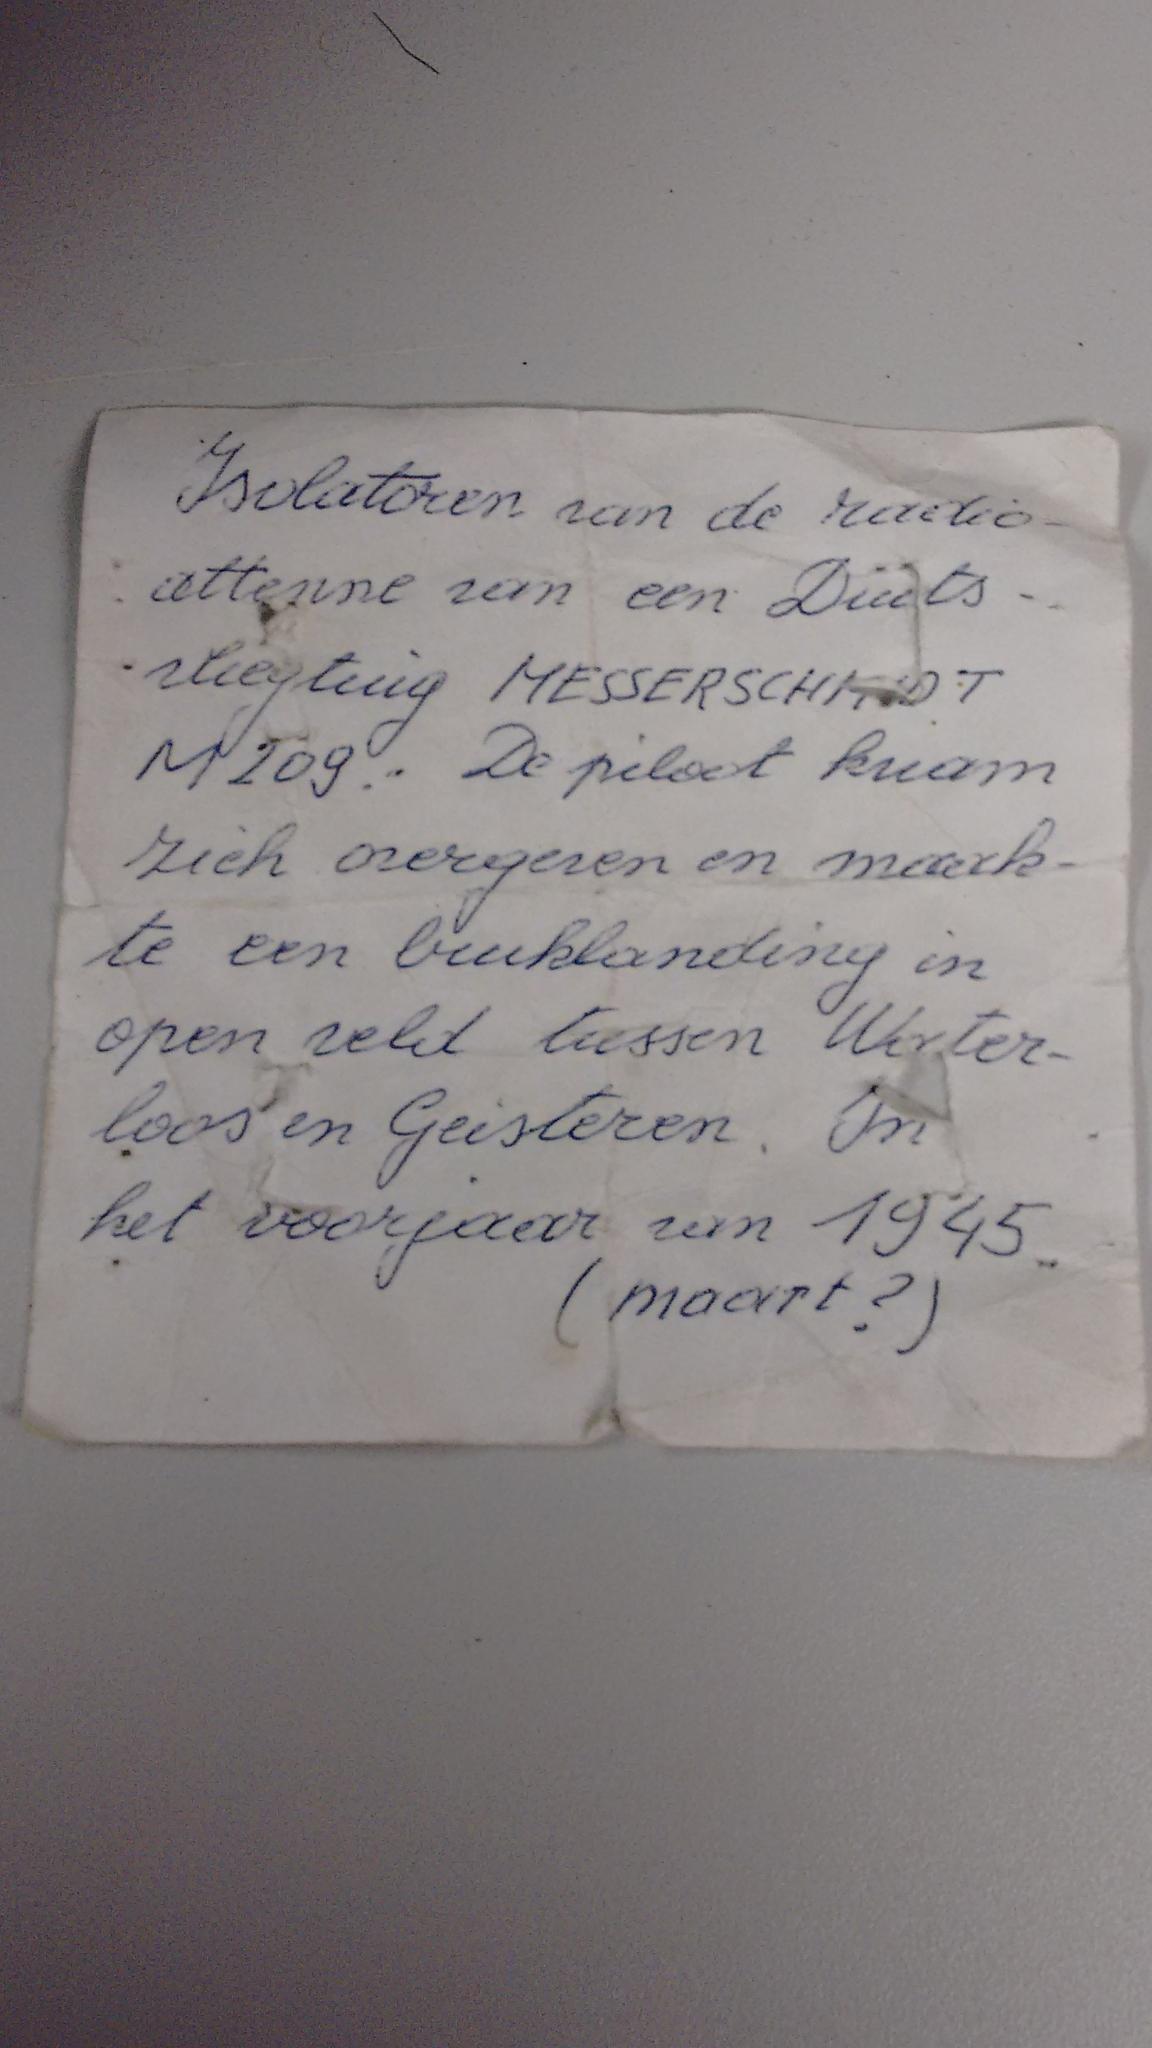 Isolatoren van de radio-
attenne van een Duits-
vliegtuig MESSERSCHMIDT
M209. De piloot kwam
zich overgeven en maak-
te een buiklanding in
open veld tussen Water-
loos en Geisteren. In
het voorjaar van 1945.
(maart?)